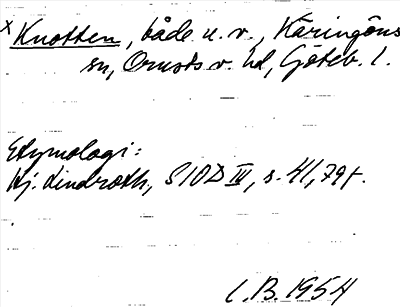 x Knotten, både u. v., Käringöns
sn, Orusts v. hd, Göteb. l.
Etymologi:
Hj. Lindroth, SIOD III, s. 41, 79 f.
C.B. 1954